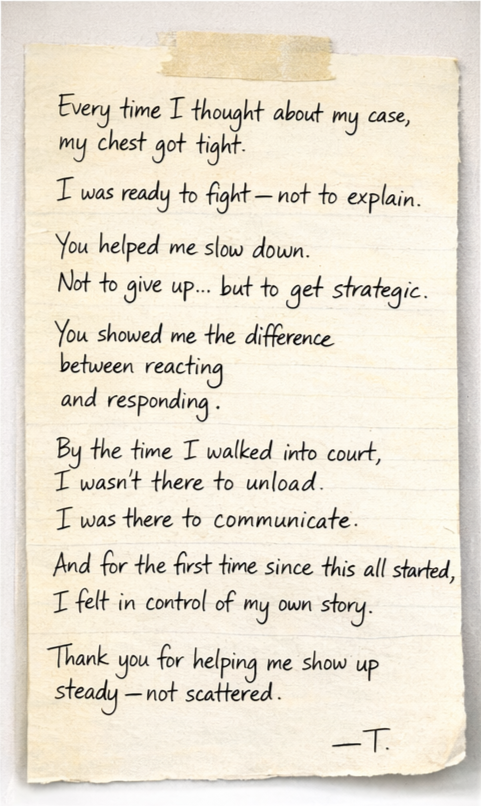 Every time I thought about my case,
my chest got tight.
I was ready to fight — not to explain.
You helped me slow down.
Not to give up... but to get strategic.
You showed me the difference
between reacting
and responding.
By the time I walked into court,
I wasn't there to unload.
I was there to communicate.
And for the first time since this all started,
I felt in control of my own story.
Thank you for helping me show up
steady — not scattered.
—T.